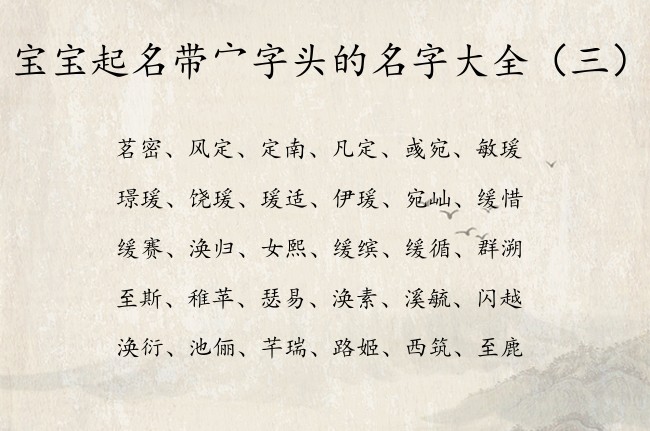 宝宝起名带宀字头的名字大全（三）
茗密、风定、定南、凡定、彧宛、敏瑗
璟瑗、饶瑗、瑗适、伊瑗、宛屾、缓惜
缓赛、涣归、女熙、缓缤、缓循、群溯
至斯、稚苹、瑟易、涣素、溪毓、闪越
涣衍、池俪、芊瑞、路姬、西筑、至鹿